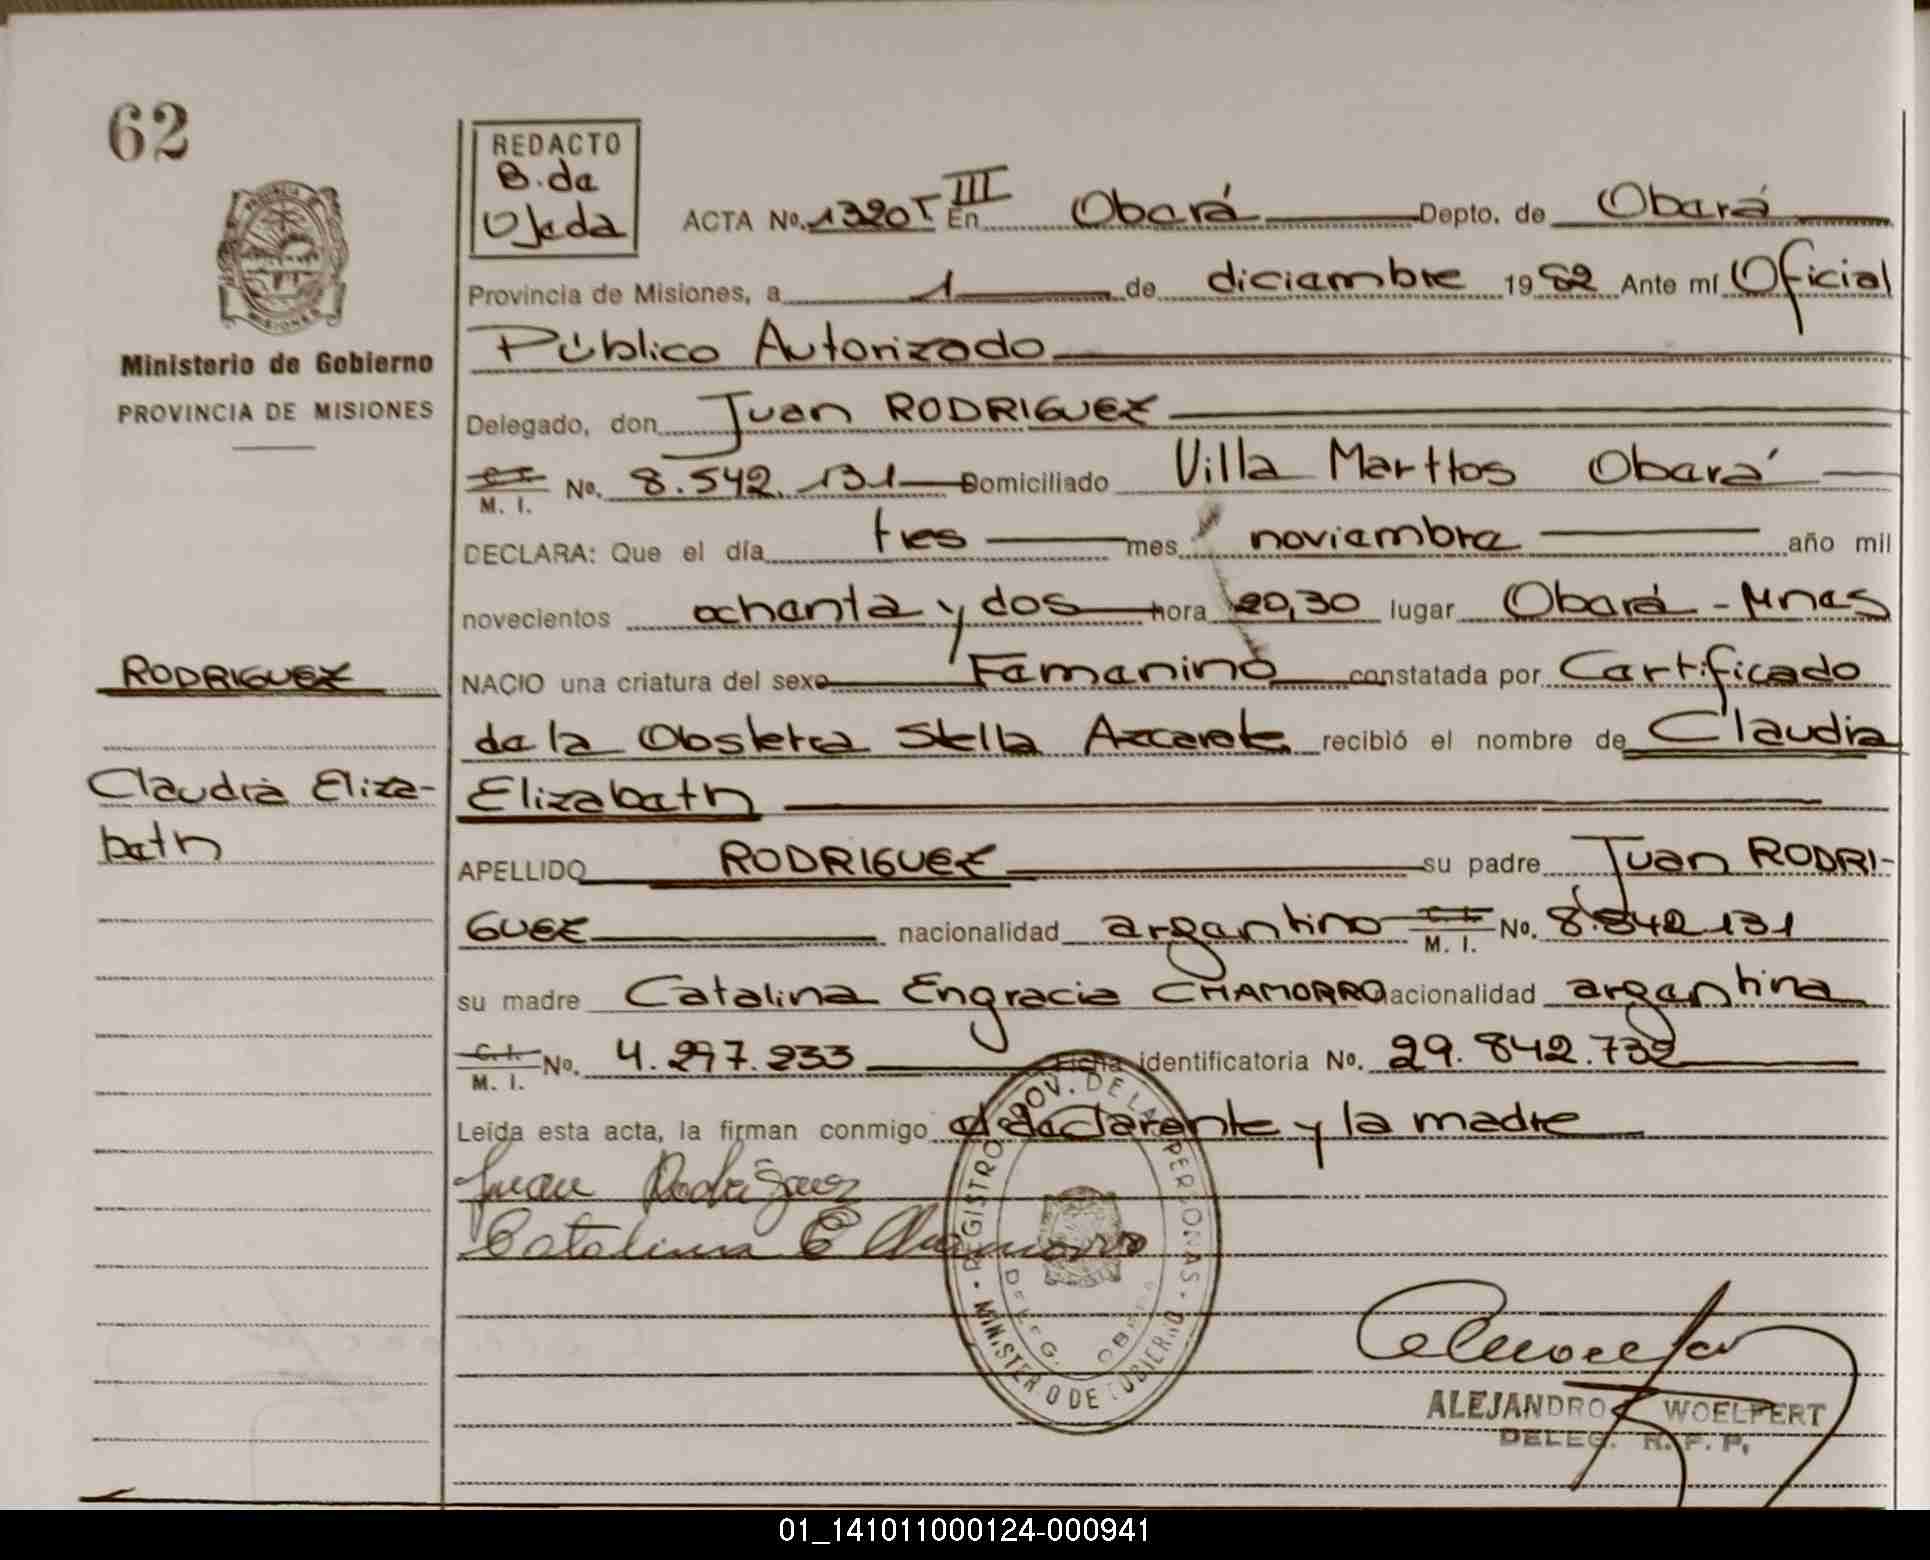 62
REDACTO
B. de
Ojeda
ACTA No. 1320 T III En Oberá Depto. de Oberá
Provincia de Misiones, a 1 de diciembre 1982 Ante mí Oficial
Público Autorizado
Delegado, don Juan RODRIGUEZ
C. I.
M. I. No. 8.542.131 Domiciliado Villa Marttos Oberá
DECLARA: Que el día tres mes noviembre año mil
novecientos ochenta y dos hora 20,30 lugar Oberá - Mnes
NACIO una criatura del sexo Femenino constatada por Certificado
de la Obstetra Stella Azcarate recibió el nombre de Claudia
Elizabeth
APELLIDO RODRIGUEZ su padre Juan RODRI-
GUEZ nacionalidad argentino C. I.
M. I. No. 8.542.131
su madre Catalina Engracia CHAMORRO nacionalidad argentina
C. I.
M. I. No. 4.297.233 Ficha identificatoria No. 29.842.732
Leída esta acta, la firman conmigo el declarante y la madre
Juan Rodriguez
Catalina E Chamorro
Ministerio de Gobierno
PROVINCIA DE MISIONES
RODRIGUEZ
Claudia Eliza-
beth
PROVINCIA DE
MISIONES
REGISTRO PROV. DE LAS PERSONAS
MINISTERIO DE GOBIERNO
DELEG. OBERA
ALEJANDRO WOELFERT
DELEG. R. P. P.
01_141011000124-000941